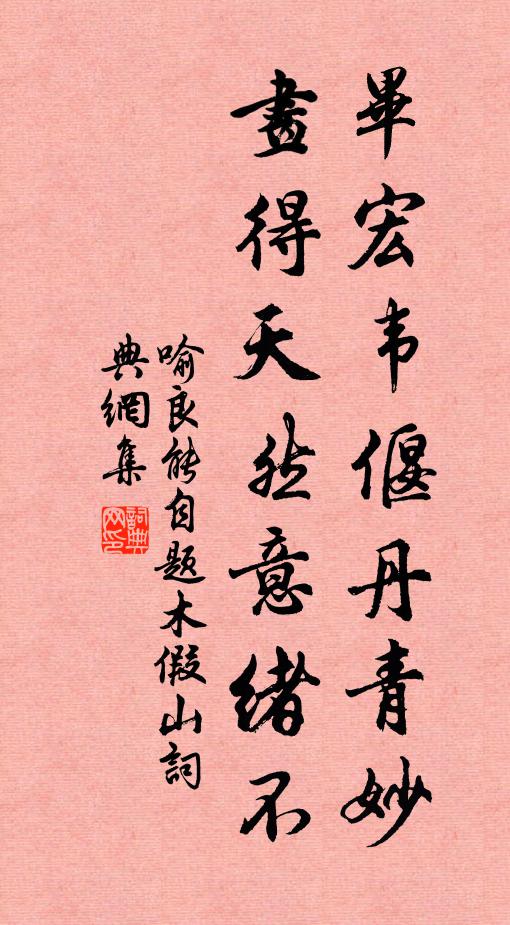 畢宏韦偃丹青妙
畫得天然意緒不
喻良能自題木假山詞
典網集
詞典網印